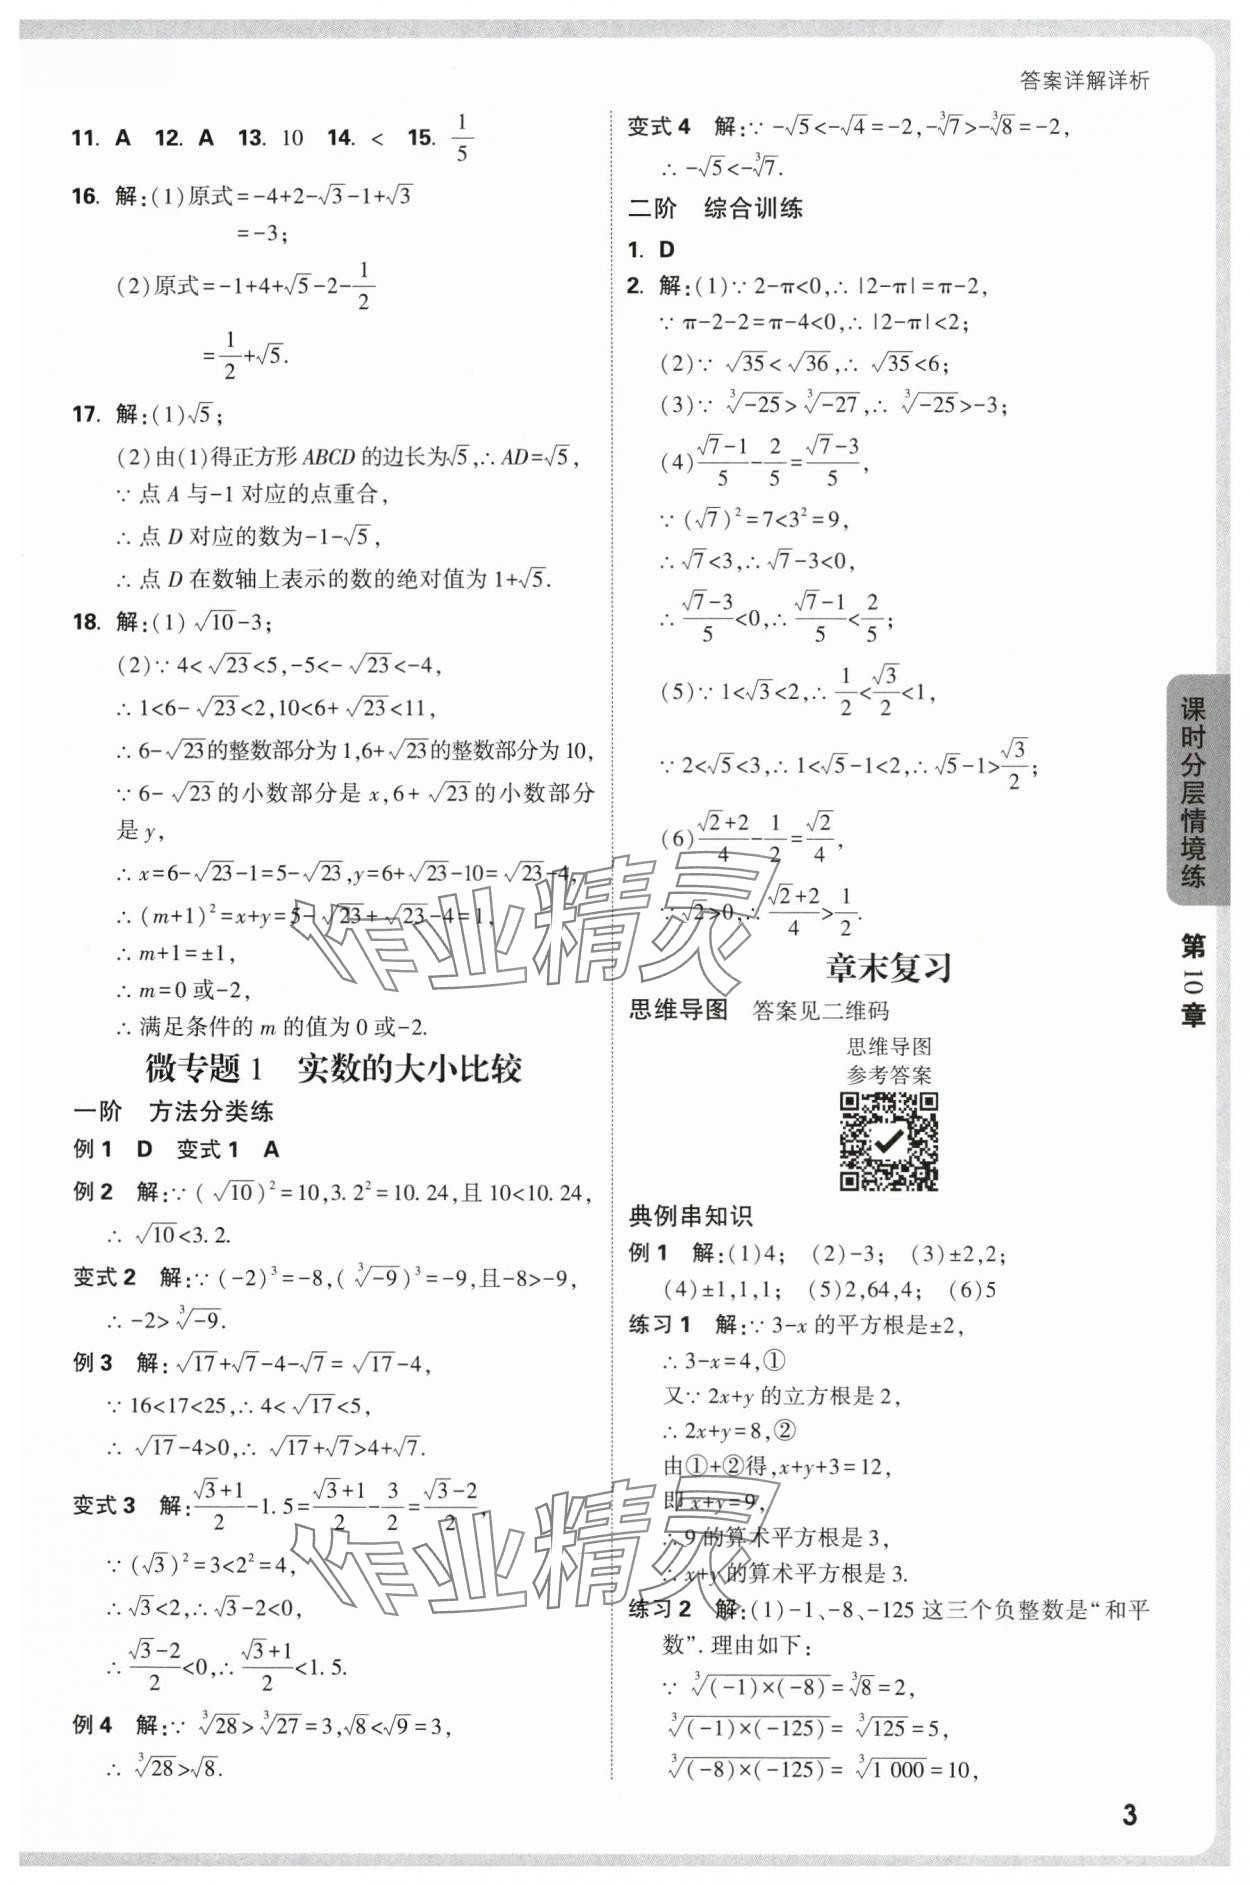 答案详解详析
11. A 12. A 13. 10 14. < 15. 1/5
16. 解:(1)原式=-4+2-√3-1+√3
=-3;
(2)原式=-1+4+√5-2-1/2
=1/2+√5.
17. 解:(1)√5;
(2)由(1)得正方形ABCD的边长为√5,∴AD=√5,
∵点A与-1对应的点重合,
∴点D对应的数为-1-√5,
∴点D在数轴上表示的数的绝对值为1+√5.
18. 解:(1)√10-3;
(2)∵4<√23<5,-5<-√23<-4,
∴1<6-√23<2,10<6+√23<11,
∴6-√23的整数部分为1,6+√23的整数部分为10,
∵6-√23的小数部分是x,6+√23的小数部分
是y,
∴x=6-√23-1=5-√23,y=6+√23-10=√23-4,
∴(m+1)²=x+y=5-√23+√23-4=1,
∴m+1=±1,
∴m=0或-2,
∴满足条件的m的值为0或-2.
微专题1 实数的大小比较
一阶 方法分类练
例1 D 变式1 A
例2 解:∵(√10)²=10,3.2²=10.24,且10<10.24,
∴√10<3.2.
变式2 解:∵(-2)³=-8,(∛-9)³=-9,且-8>-9,
∴-2>∛-9.
例3 解:√17+√7-4-√7=√17-4,
∵16<17<25,∴4<√17<5,
∴√17-4>0,∴√17+√7>4+√7.
变式3 解:(√3+1)/2-1.5=(√3+1)/2-3/2=(√3-2)/2,
∵(√3)²=3<2²=4,
∴√3<2,∴√3-2<0,
∴(√3-2)/2<0,∴(√3+1)/2<1.5.
例4 解:∵∛28>∛27=3,√8<√9=3,
∴∛28>√8.
变式4 解:∵-√5<-√4=-2,-∛7>-∛8=-2,
∴-√5<-∛7.
二阶 综合训练
1. D
2. 解:(1)∵2-π<0,∴|2-π|=π-2,
∵π-2-2=π-4<0,∴|2-π|<2;
(2)∵√35<√36,∴√35<6;
(3)∵∛-25>∛-27,∴∛-25>-3;
(4)(√7-1)/5-2/5=(√7-3)/5,
∵(√7)²=7<3²=9,
∴√7<3,∴√7-3<0,
∴(√7-3)/5<0,∴(√7-1)/5<2/5;
(5)∵1<√3<2,∴1/2<√3/2<1,
∵2<√5<3,∴1<√5-1<2,∴√5-1>√3/2;
(6)(√2+2)/4-1/2=√2/4,
∵√2>0,∴(√2+2)/4>1/2.
章末复习
思维导图 答案见二维码
思维导图
参考答案
典例串知识
例1 解:(1)4; (2)-3; (3)±2,2;
(4)±1,1,1; (5)2,64,4; (6)5
练习1 解:∵3-x的平方根是±2,
∴3-x=4,①
又∵2x+y的立方根是2,
∴2x+y=8,②
由①+②得,x+y+3=12,
即x+y=9,
∴9的算术平方根是3,
∴x+y的算术平方根是3.
练习2 解:(1)-1、-8、-125这三个负整数是“和平
数”.理由如下:
∵∛(-1)×(-8)=∛8=2,
∛(-1)×(-125)=∛125=5,
∛(-8)×(-125)=∛1 000=10,
课时分层情境练
第10章
3
作业精灵
作业精灵